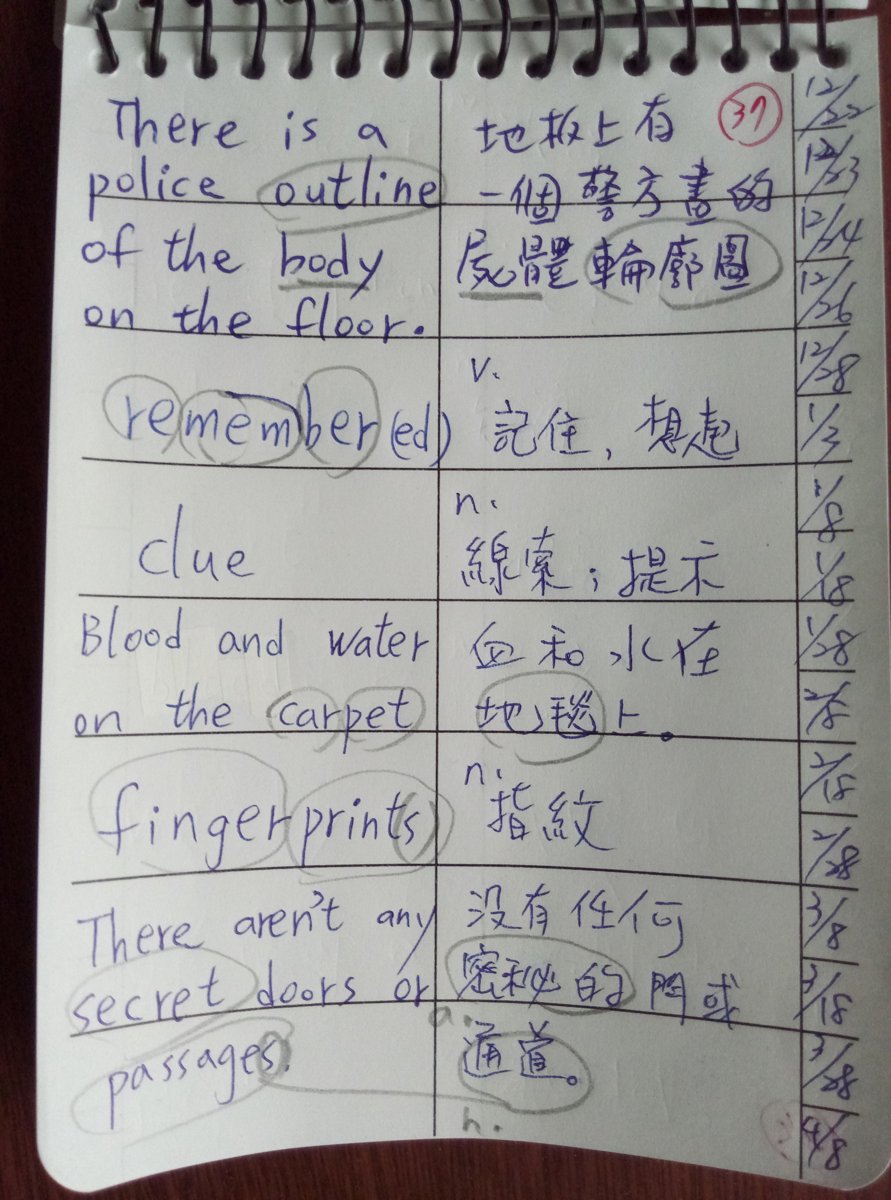 There is a
police outline
of the body
on the floor.
地板上有
一個警方畫的
屍體輪廓圖
37
remember(ed)
v.
記住，想起
clue
n.
線索；提示
Blood and water
on the carpet
血和水在
地毯上。
fingerprint(s)
n.
指紋
There aren't any
secret doors or
passages.
没有任何
密秘的門或
a.
通道。
n.
12/22
12/23
12/24
12/26
12/28
1/3
1/8
1/18
1/28
2/8
2/18
2/28
3/8
3/18
3/28
4/8